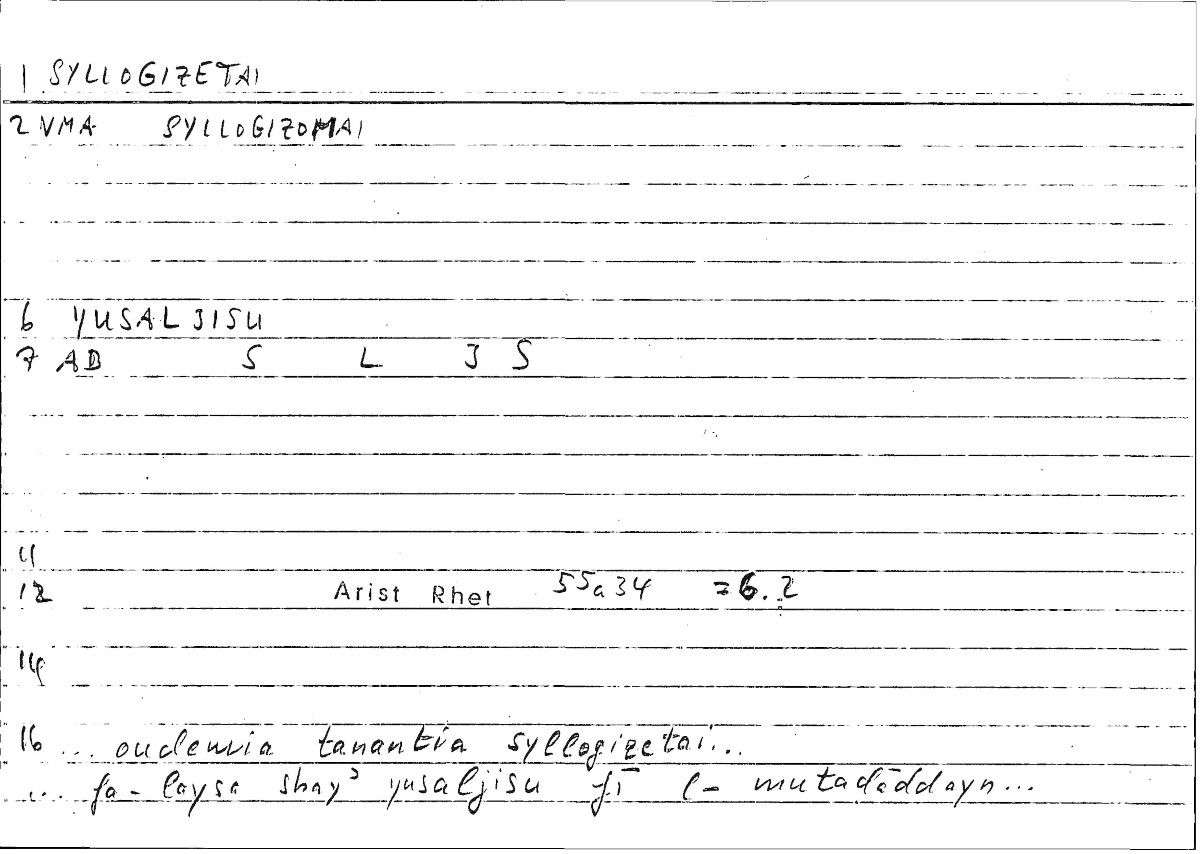 1 SYLLOGIZETAI
2 VMA SYLLOGIZOMAI
6 YUSALJISU
7 AB S L J S
11
12 Arist Rhet 55a34 =6.2
14
16 ... oudemia tanantia syllogizetai...
... fa-laysa shayʾ yusaljisu fī l-mutadāddayn...